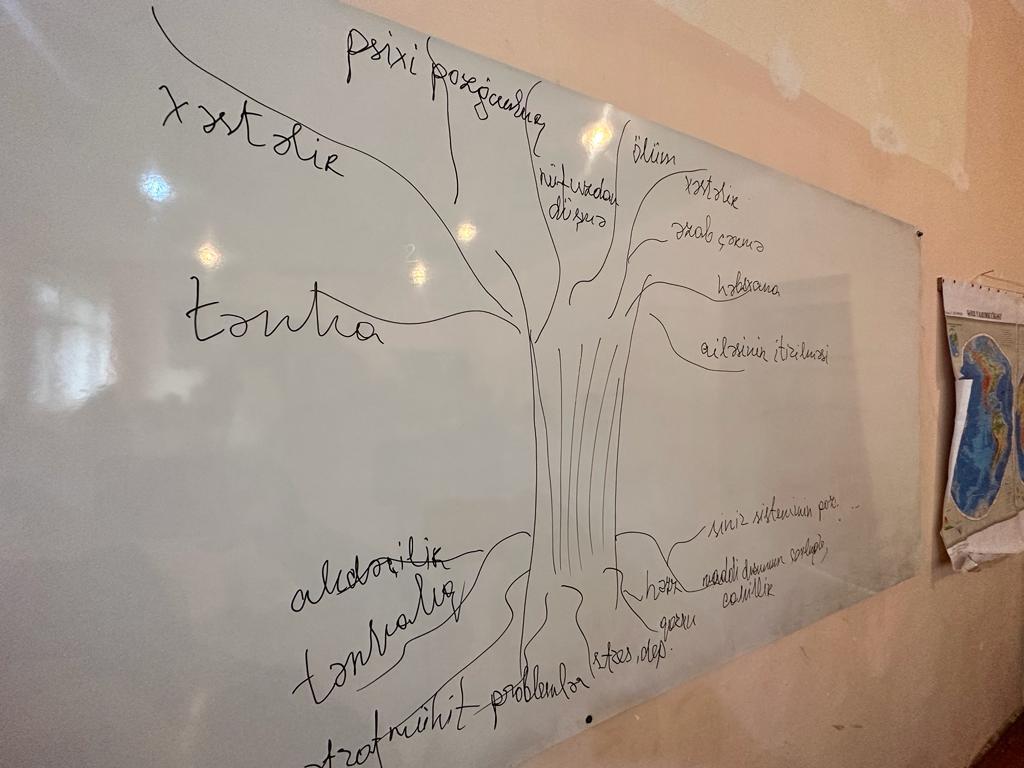 psixi pozğunluq
xəstəlik
nüfuzdan
düşmə
ölüm
xəstəlik
əzab çəkmə
həbsxana
ailəsinin itirilməsi
tənha
sinir sisteminin poz. ...
aludəçilik
tənhalıq
maddi durumun
cahillik
qozru
stres, dep.
ətraf mühit problemlər